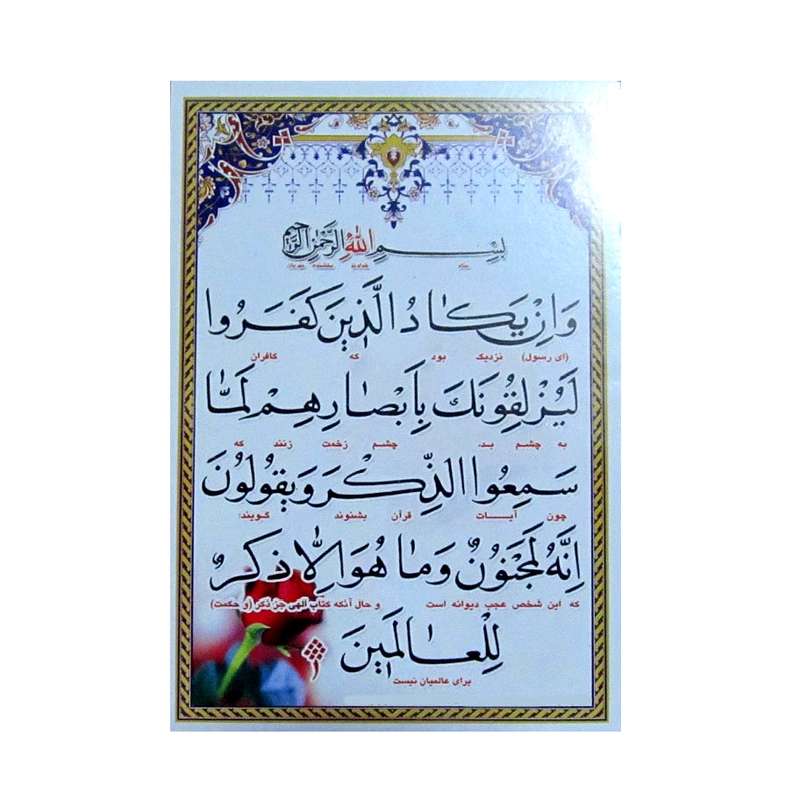 بِسْمِ اللهِ الرَّحْمٰنِ الرَّحیمِ
بنام خداوند بخشنده مهربان
وَاِنْ یَکٰادُ الَّذینَ کَفَرُوا
(ای رسول) نزدیک بود که کافران
لَیُزْلِقُونَکَ بِاَبْصٰارِهِمْ لَمّٰا
به چشم بد، چشم زخمت زنند که
سَمِعُوا الذِّکْرَ وَیَقُولُونَ
چون آیات قرآن بشنوند گویند:
اِنَّهُ لَمَجْنُونٌ وَمٰا هُوَ اِلّٰا ذِکْرٌ
که این شخص عجب دیوانه است و حال آنکه کتاب الهی جز ذکر (و حکمت)
لِلْعٰالَمینَ
برای عالمیان نیست